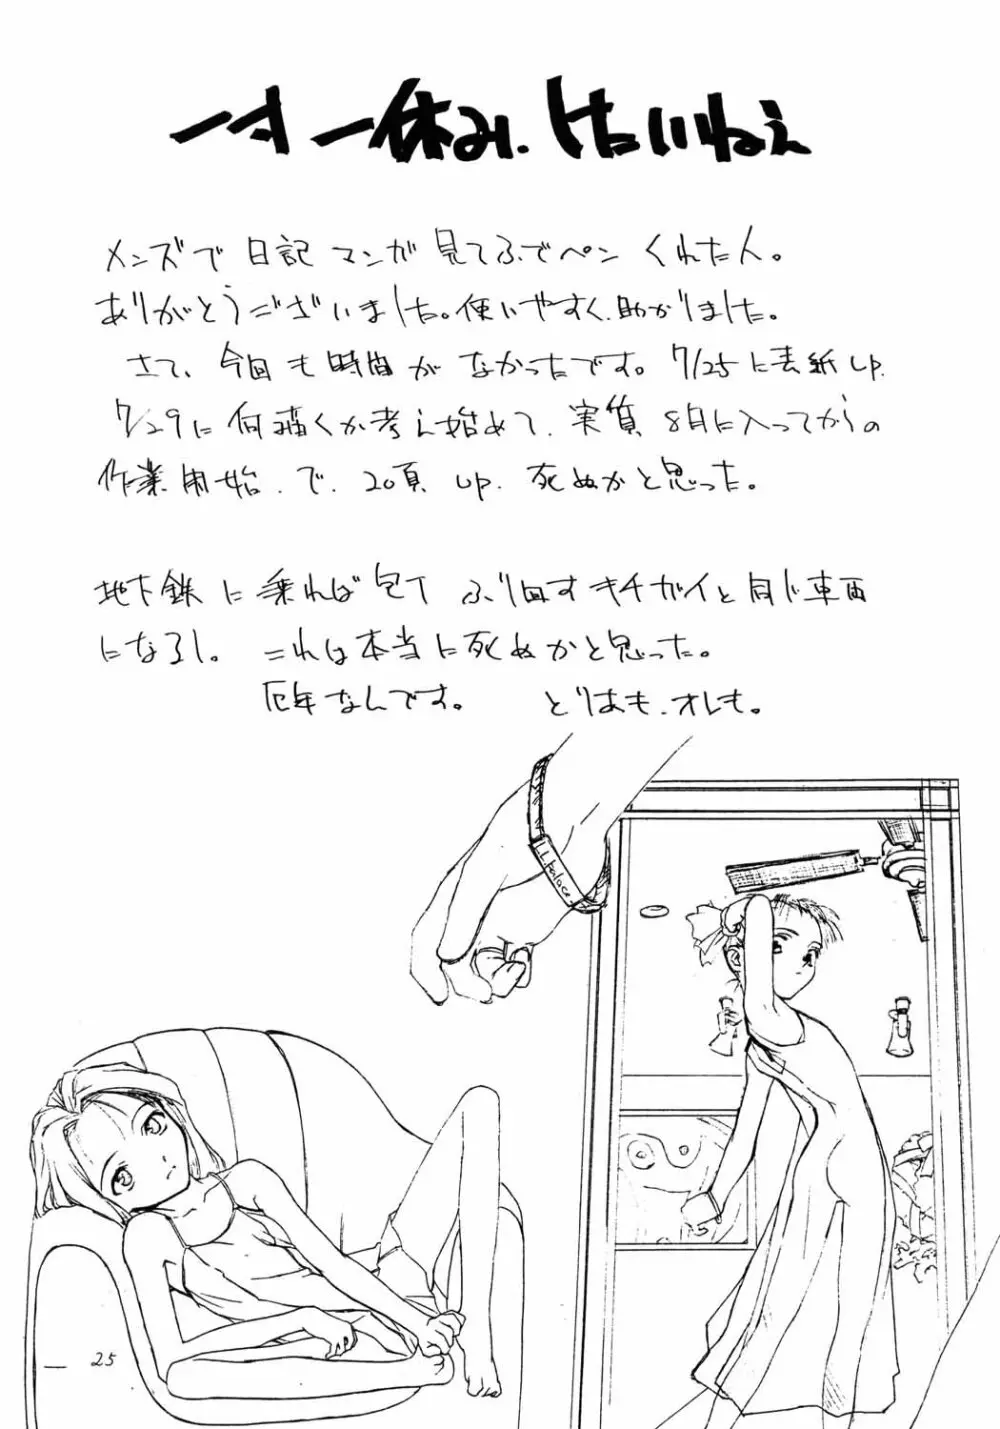 一寸一休み、とはいいねぇ
メンズで日記マンガ見てふでペンくれた人。
ありがとうございました。使いやすく、助かりました。
さて、今回も時間がなかったです。7/25に表紙up.
7/29に何描くか考え始めて、実質8月に入ってからの
作業開始.で.20頁up.死ぬかと思った。
地下鉄に乗れば包丁ふり回すキチガイと同じ車両
になるし。これは本当に死ぬかと思った。
厄年なんです。とりあも.オレも。
L.Palace
25